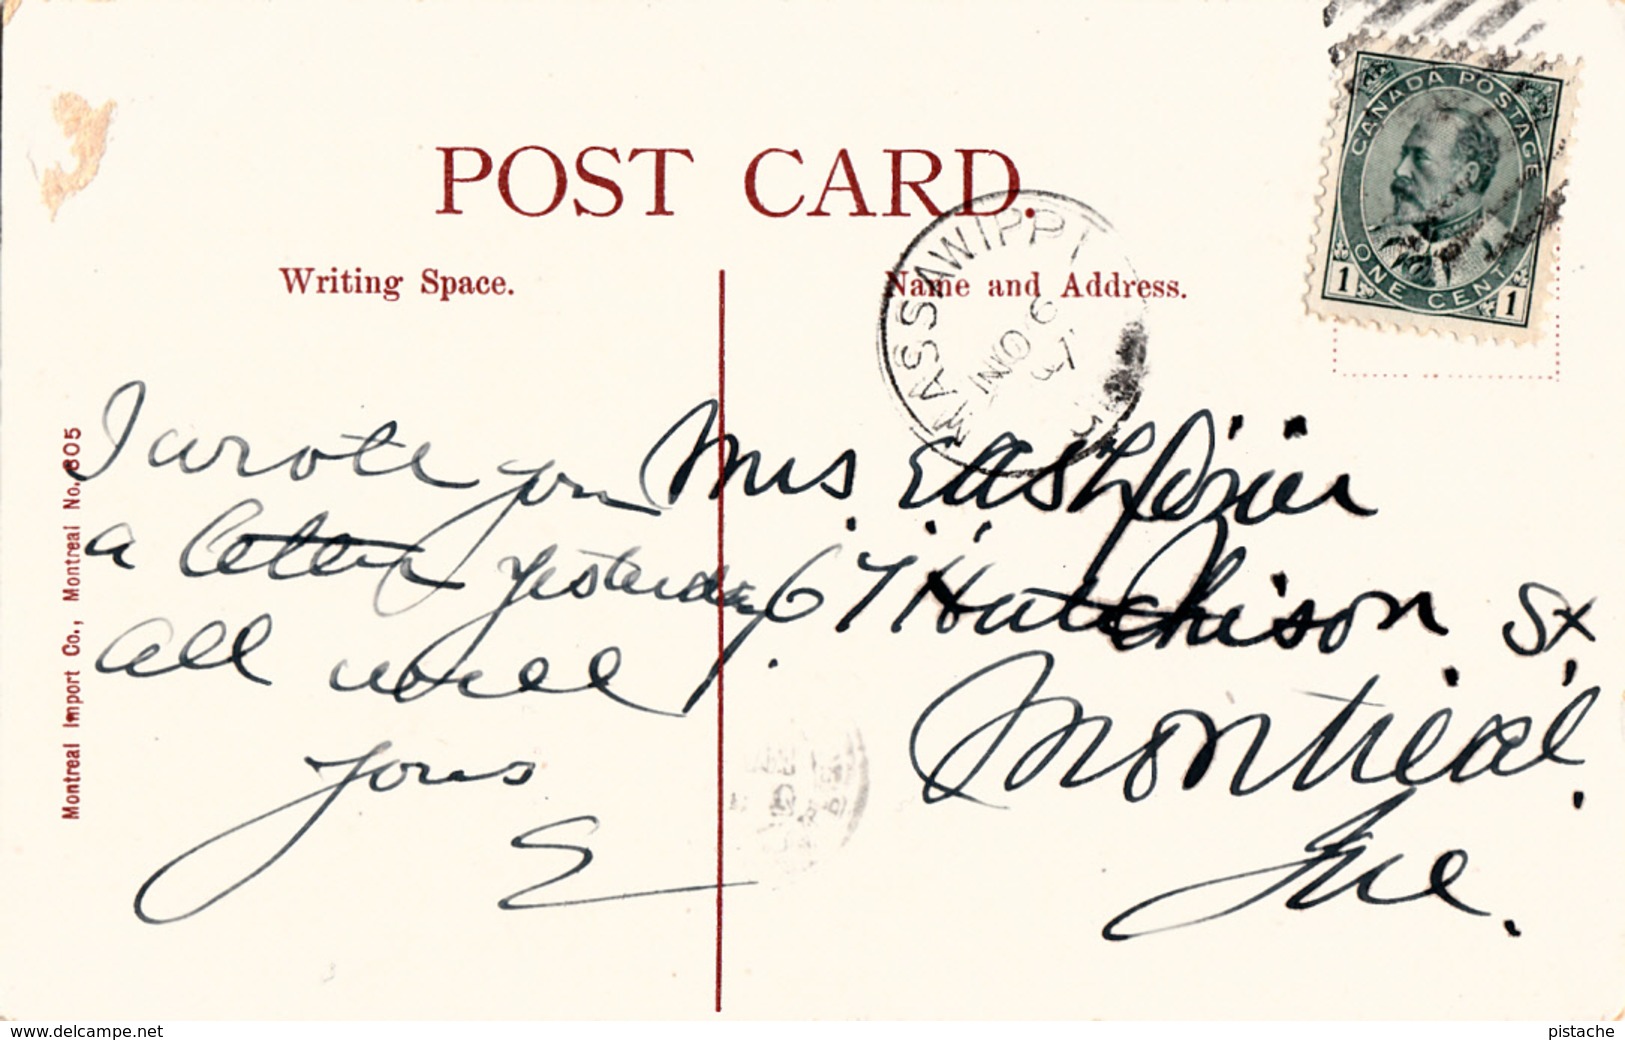 POST CARD.
Writing Space.
Name and Address.
CANADA POSTAGE
ONE CENT
1 1
MASSAWIPPI
I wrote you
a letter yesterday
all well
yours
E
Mrs. East
67 Hutchison St.
Montreal.
Que.
Montreal Import Co., Montreal No. 805
www.delcampe.net
pistache